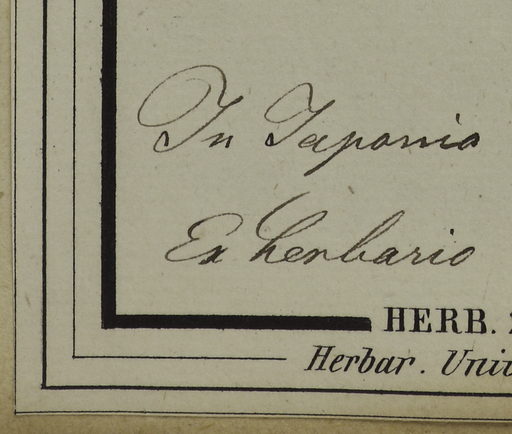 In Japonia
Ex herbario
HERB.
Herbar. Univ